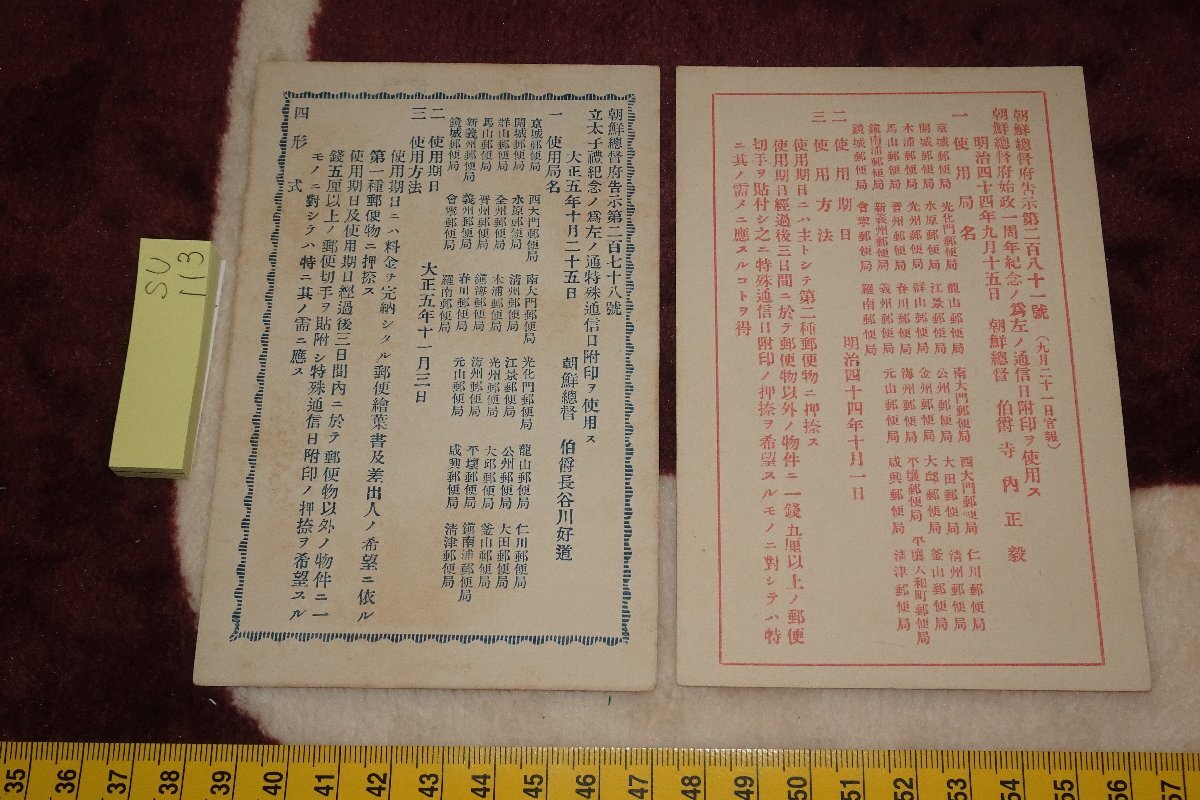 朝鮮總督府告示第二百八十一號（九月二十一日官報）
朝鮮總督府始政一周年紀念ノ爲左ノ通信日附印ヲ使用ス
明治四十四年九月十五日　朝鮮總督　伯爵　寺內正毅
一　使用局名
京城郵便局　光化門郵便局　龍山郵便局　南大門郵便局　西大門郵便局　仁川郵便局
開城郵便局　水原郵便局　江景郵便局　公州郵便局　大田郵便局　清州郵便局
木浦郵便局　光州郵便局　群山郵便局　金州郵便局　大邱郵便局　釜山郵便局
馬山郵便局　晋州郵便局　春川郵便局　海州郵便局　平壤郵便局　平壤大和町郵便局
鎭南浦郵便局　新義州郵便局　義州郵便局　元山郵便局　咸興郵便局　清津郵便局
鏡城郵便局　會寧郵便局　羅南郵便局
二　使用期日　明治四十四年十月一日
三　使用方法
使用期日ニハ主トシテ第二種郵便物ニ押捺ス
使用期日經過後三日間ニ於テ郵便物以外ノ物件ニ一錢五厘以上ノ郵便
切手ヲ貼付シ之ニ特殊通信日附印ノ押捺ヲ希望スルモノニ對シテハ特
ニ其ノ需メニ應スルコトヲ得
朝鮮總督府告示第二百七十八號
立太子禮紀念ノ爲左ノ通特殊通信日附印ヲ使用ス
大正五年十月二十五日　朝鮮總督　伯爵長谷川好道
一　使用局名
京城郵便局　西大門郵便局　南大門郵便局　光化門郵便局　龍山郵便局　仁川郵便局
開城郵便局　水原郵便局　清州郵便局　江景郵便局　公州郵便局　大田郵便局
群山郵便局　全州郵便局　木浦郵便局　光州郵便局　大邱郵便局　釜山郵便局
馬山郵便局　晋州郵便局　鎭海郵便局　海州郵便局　平壤郵便局　鎭南浦郵便局
新義州郵便局　義州郵便局　春川郵便局　元山郵便局　咸興郵便局　清津郵便局
鏡城郵便局　會寧郵便局　羅南郵便局
二　使用期日　大正五年十一月三日
三　使用方法
使用期日ニハ料金ヲ完納シタル郵便繪葉書及差出人ノ希望ニ依ル
第一種郵便物ニ押捺ス
使用期日及使用期日經過後三日間內ニ於テ郵便物以外ノ物件ニ一
錢五厘以上ノ郵便切手ヲ貼附シ特殊通信日附印ノ押捺ヲ希望スル
モノニ對シテハ特ニ其ノ需ニ應ス
四　形式
SU
113
35 36 37 38 39 40 41 42 43 44 45 46 47 48 49 50 51 52 53 54 55 56 57